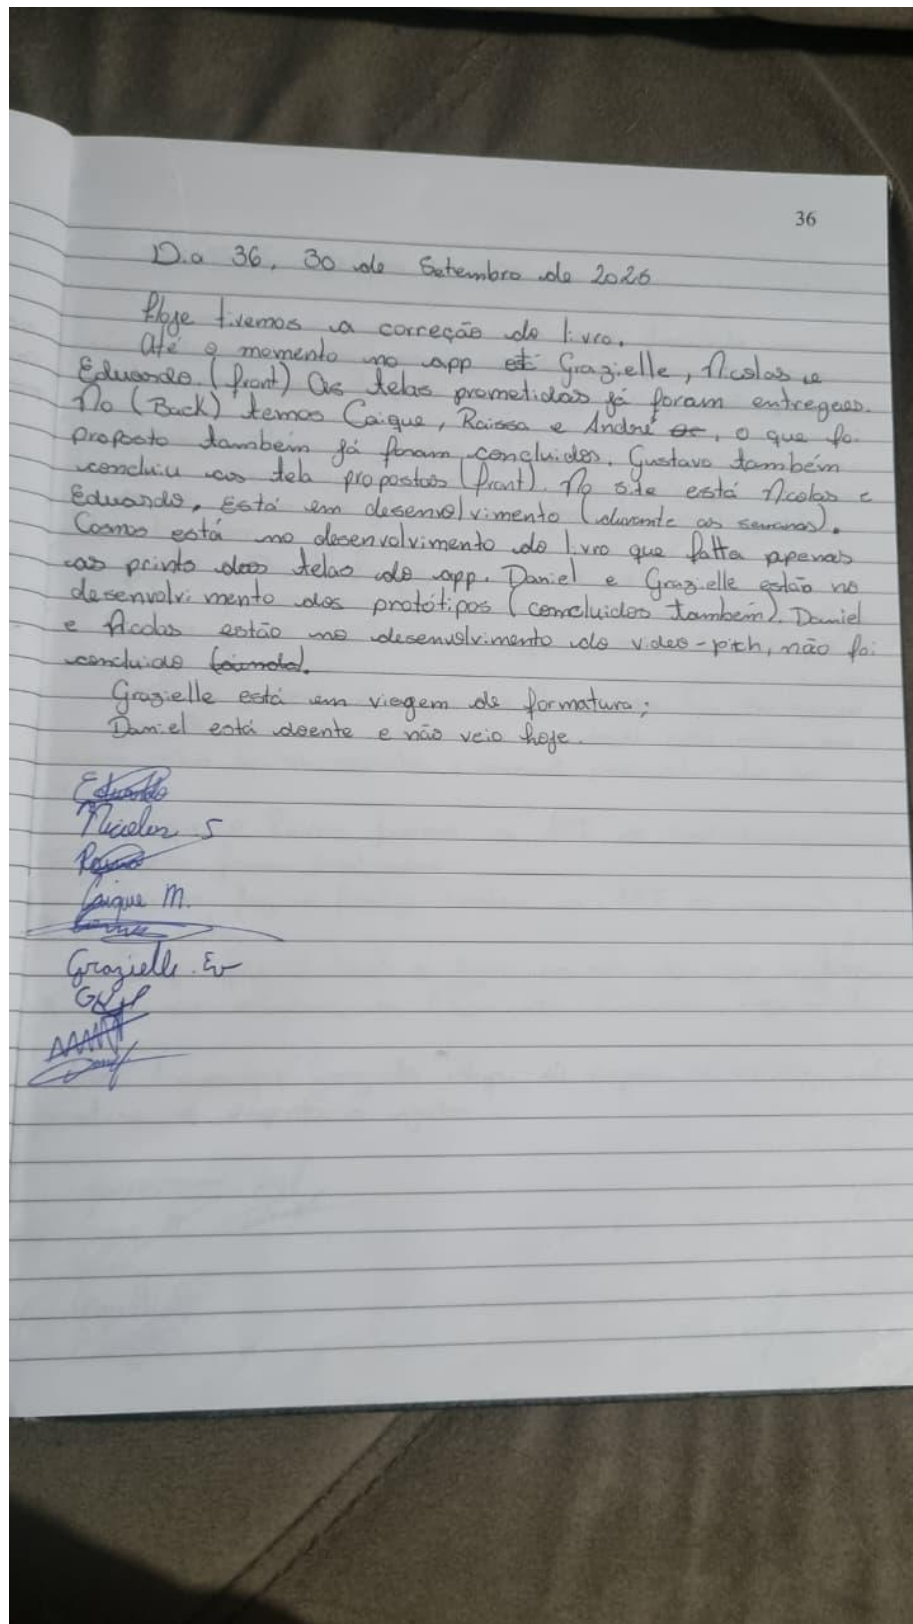 36
Dia 36, 30 de Setembro de 2025
Hoje tivemos a correção do livro.
Até o momento no app Grazielle, Nicolas e
Eduardo. (front) As telas prometidas já foram entregues.
No (Back) temos Caique, Raissa e André, o que foi
proposto também já foram concluídos. Gustavo também
concluiu as tela propostas (front). No site está Nicolas e
Eduardo, está em desenvolvimento (durante as semanas).
Cosmos está no desenvolvimento do livro que falta apenas
as prints das telas do app. Daniel e Grazielle estão no
desenvolvimento dos protótipos (concluidos também). Daniel
e Nicolas estão no desenvolvimento do video-pitch, não foi
concluido (ainda).
Grazielle está em viagem de formatura;
Daniel está doente e não veio hoje.
Eduardo
Nicolas S
Caique M.
Grazielle. Ev